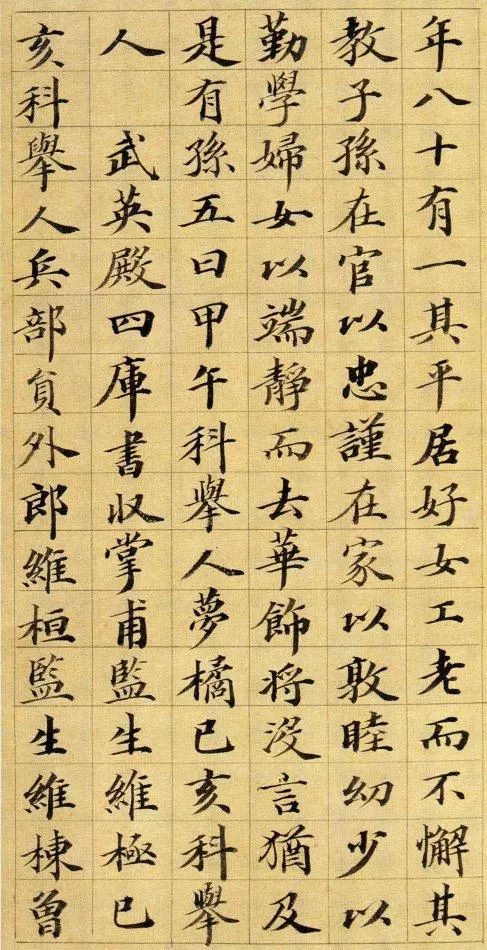 年八十有一其平居好女工老而不懈其
教子孫在官以忠謹在家以敦睦幼少以
勤學婦女以端靜而去華飾將沒言猶及
是有孫五曰甲午科舉人夢橘已亥科舉
人　武英殿四庫書收掌甫監生維極已
亥科舉人兵部負外郎維桓監生維棟曾